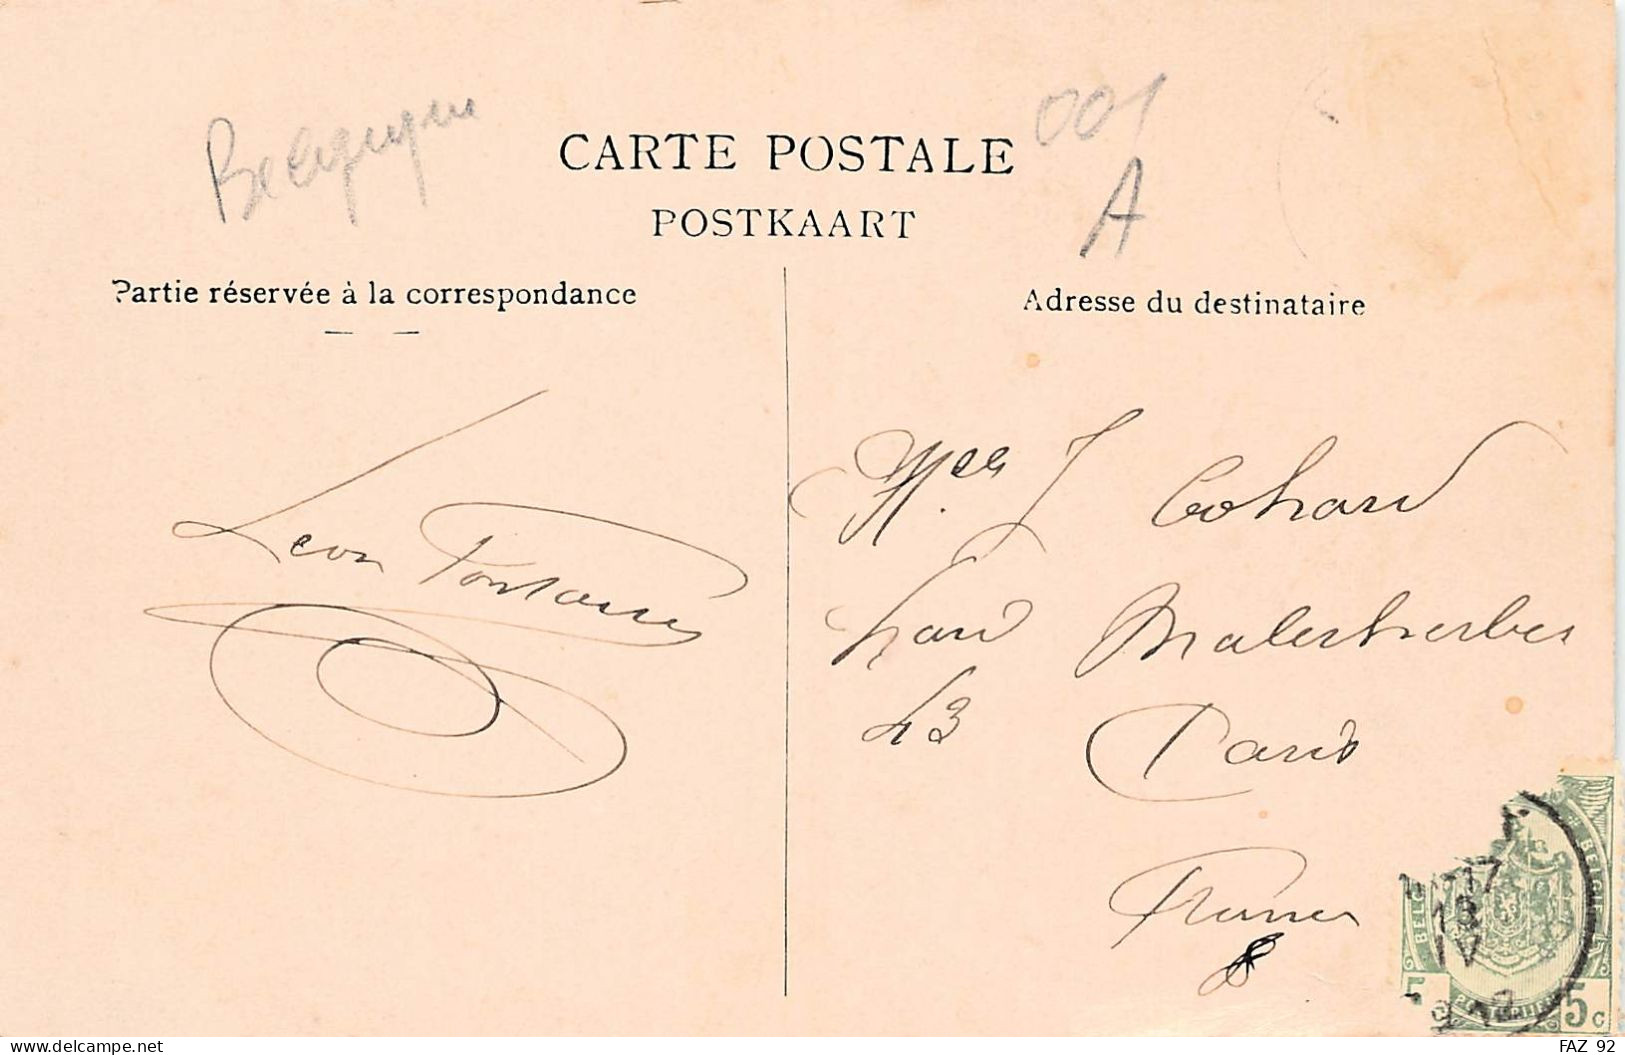 001
A
CARTE POSTALE
POSTKAART
Partie réservée à la correspondance
Adresse du destinataire
Leon Fontaine
J Cohard
Malesherbes
43
Paris
France
8
BELGIE
17
13
IV
5
5c
delcampe.net
FAZ_92